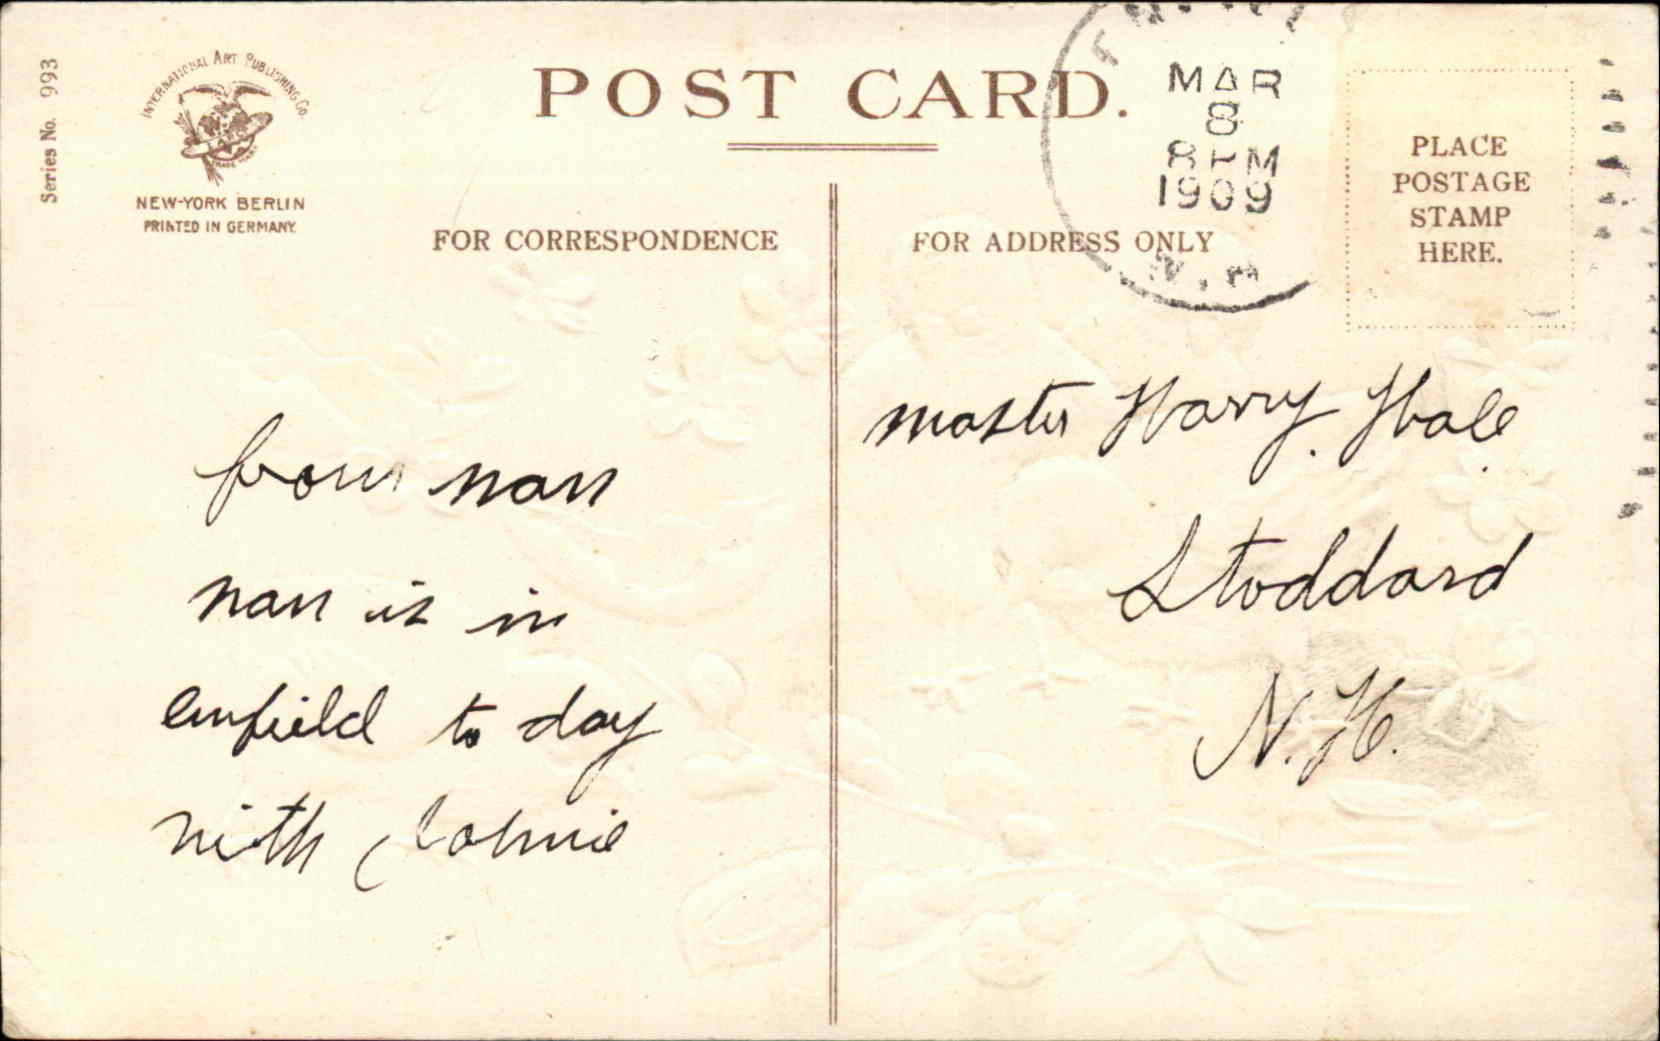 Series No. 993
INTERNATIONAL ART PUBLISHING CO.
NEW-YORK BERLIN
PRINTED IN GERMANY.
POST CARD.
FOR CORRESPONDENCE
FOR ADDRESS ONLY
MAR
8
8 PM
1909
N.H.
PLACE
POSTAGE
STAMP
HERE.
from nan
nan is in
enfield to day
with
master Harry Hale
Stoddard
N.H.